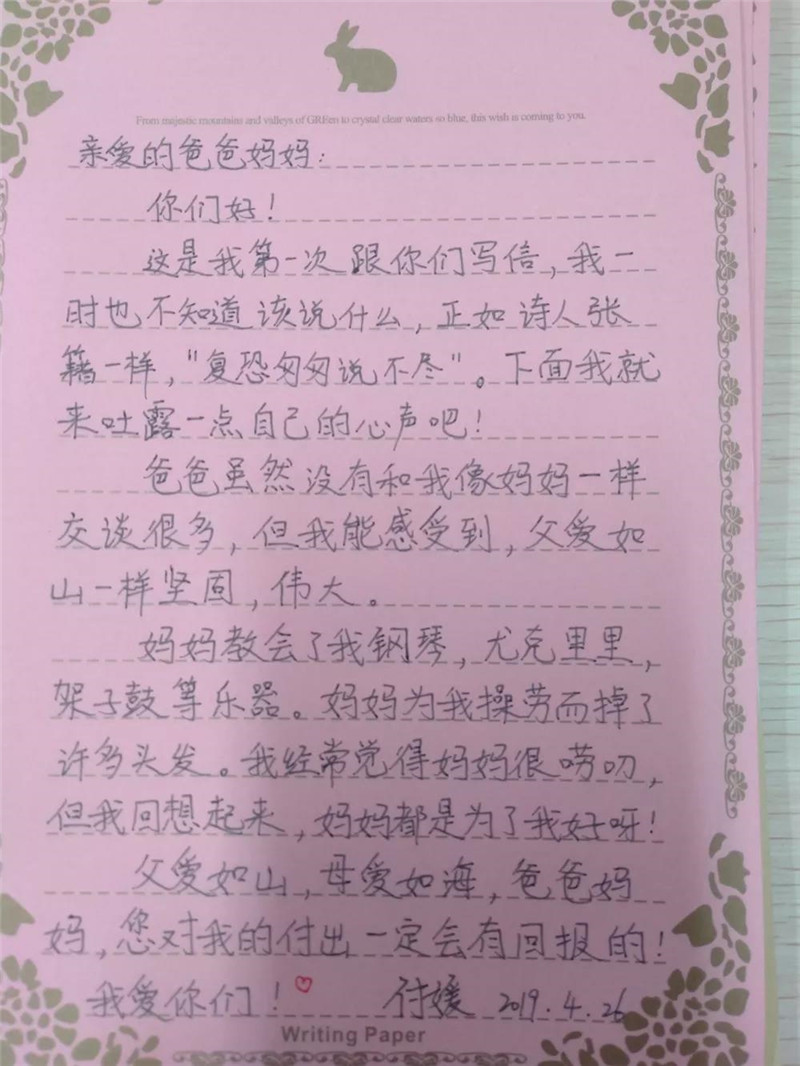 From majestic mountains and valleys of GREen to crystal clear waters so blue, this wish is coming to you.
亲爱的爸爸妈妈：
你们好！
这是我第一次跟你们写信，我一
时也不知道该说什么，正如诗人张
籍一样，“复恐匆匆说不尽”。下面我就
来吐露一点自己的心声吧！
爸爸虽然没有和我像妈妈一样
交谈很多，但我能感受到，父爱如
山一样坚固，伟大。
妈妈教会了我钢琴，尤克里里，
架子鼓等乐器。妈妈为我操劳而掉了
许多头发。我经常觉得妈妈很唠叨，
但我回想起来，妈妈都是为了我好呀！
父爱如山，母爱如海，爸爸妈
妈，您对我的付出一定会有回报的！
我爱你们！ 付媛 2019.4.26
Writing Paper